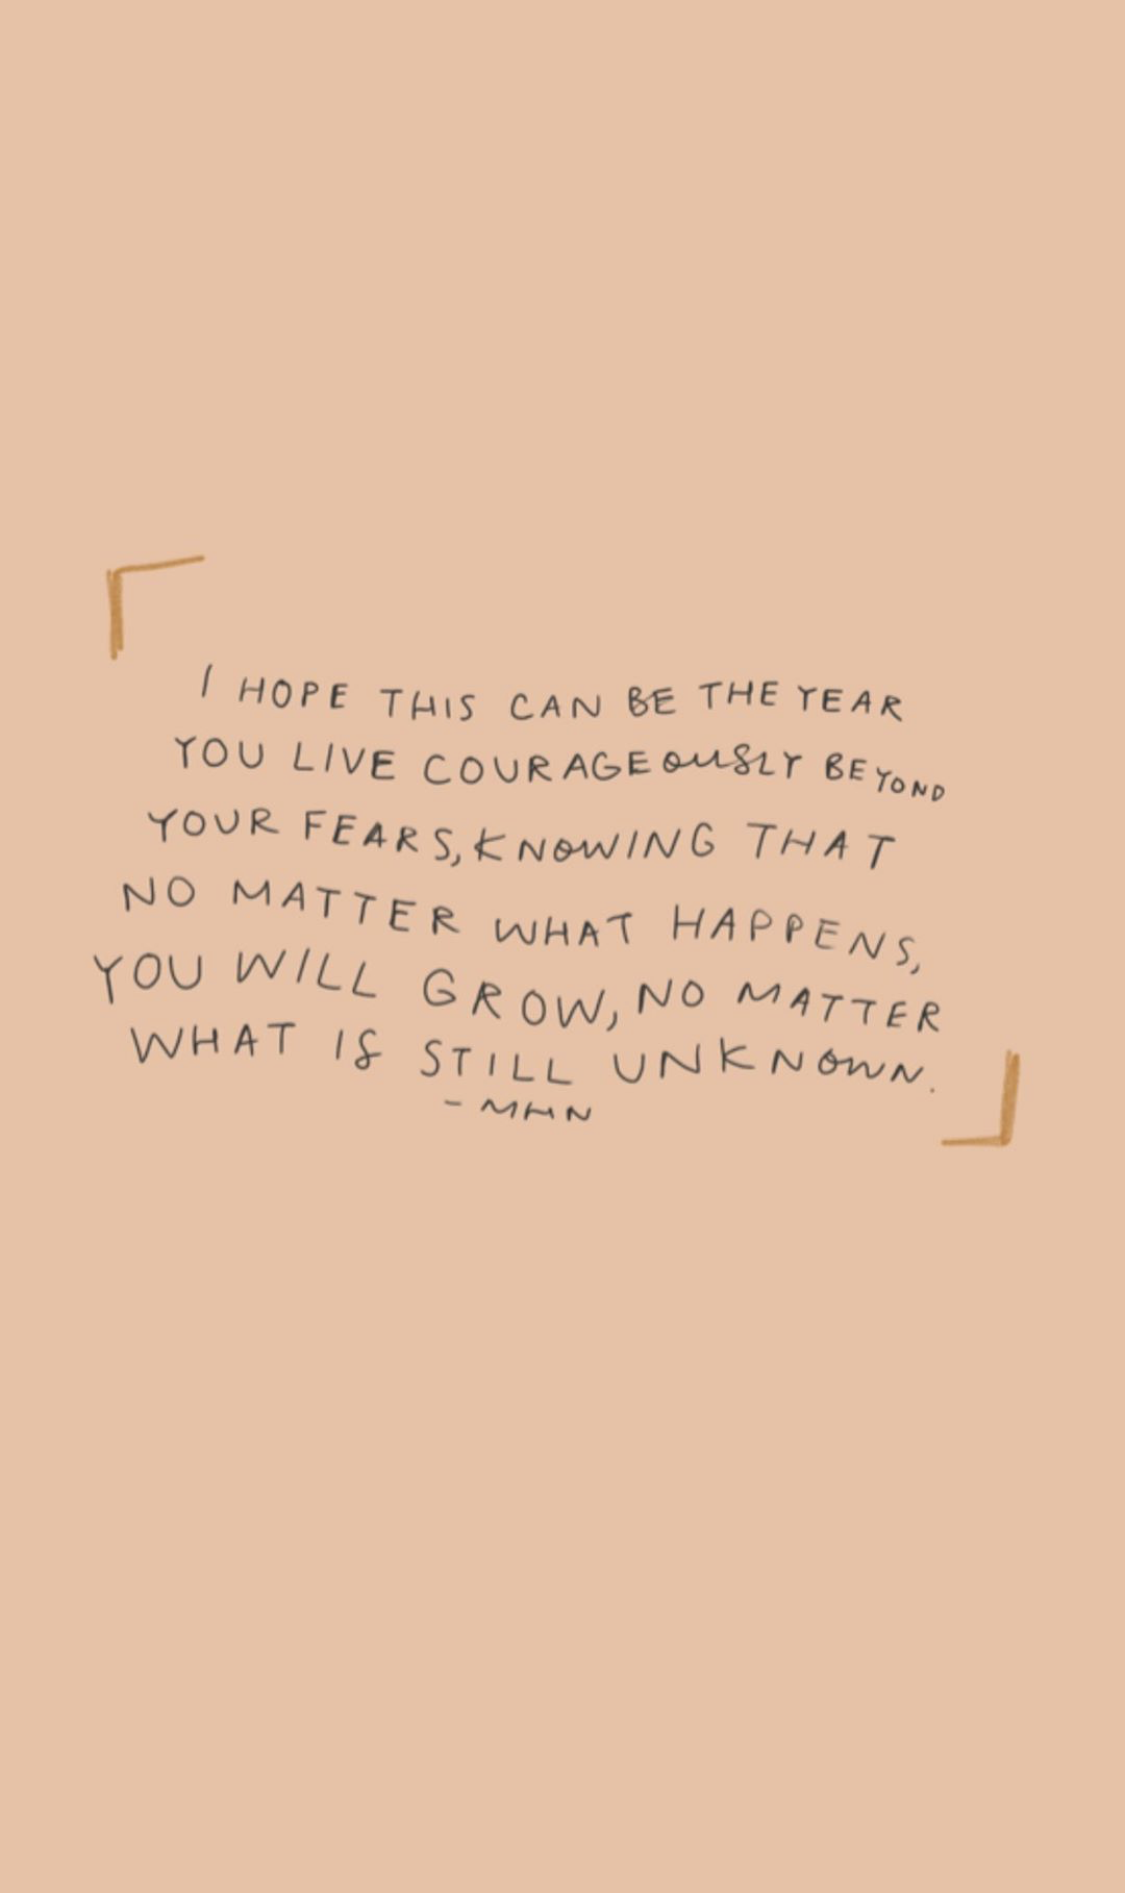 I HOPE THIS CAN BE THE YEAR
YOU LIVE COURAGEOUSLY BEYOND
YOUR FEARS, KNOWING THAT
NO MATTER WHAT HAPPENS,
YOU WILL GROW, NO MATTER
WHAT IS STILL UNKNOWN.
- MHN